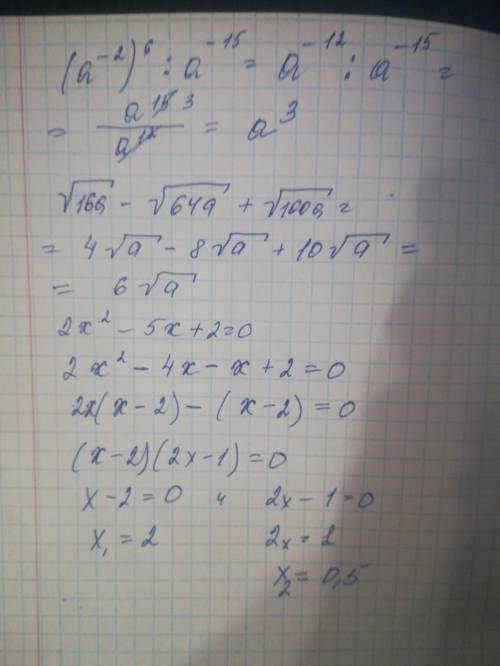 (a⁻²)⁶ : a⁻¹⁵ = a⁻¹² : a⁻¹⁵ =
= a¹⁵ ³ / a¹² = a³
√16a - √64a + √100a =
= 4√a - 8√a + 10√a =
= 6√a
2x² - 5x + 2 = 0
2x² - 4x - x + 2 = 0
2x(x-2) - (x-2) = 0
(x-2)(2x-1) = 0
x-2=0 и 2x-1=0
x₁ = 2 2x = 1
x₂ = 0,5